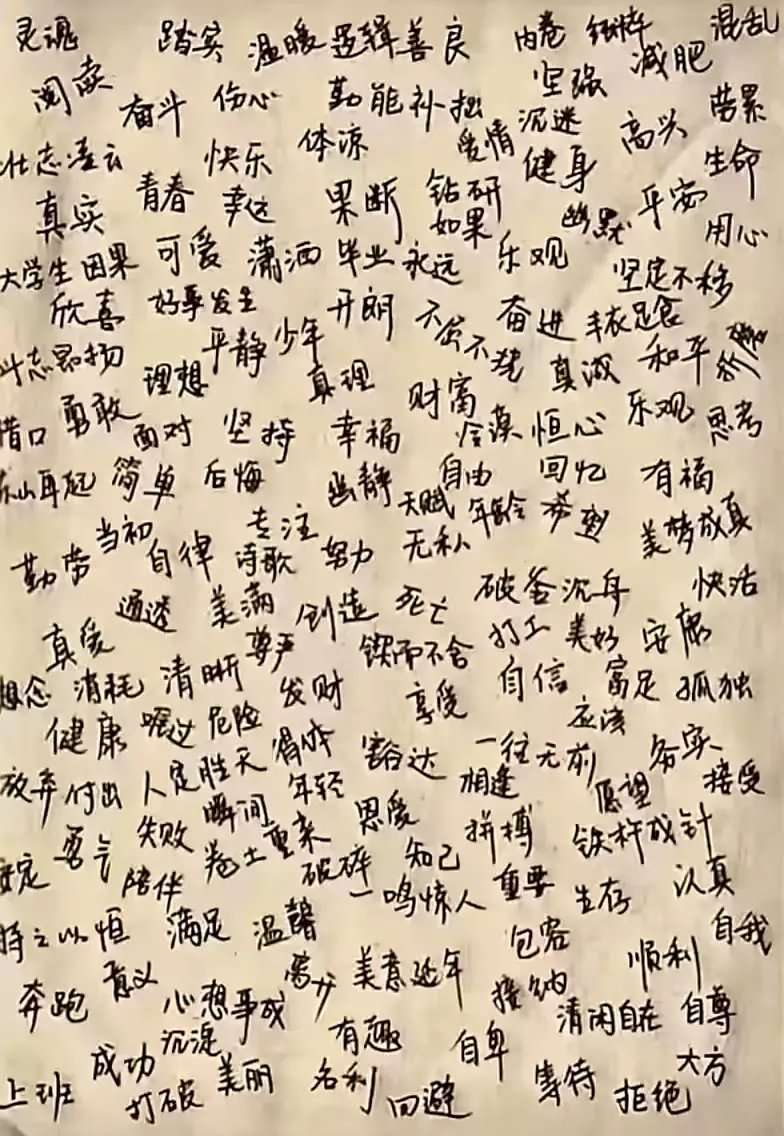 灵魂 踏实 温暖 逻辑 善良 内卷 纯粹 混乱
阅读 奋斗 伤心 勤能补拙 坚强 减肥
壮志凌云 快乐 体凉 爱情 沉迷 高兴 劳累
真实 青春 幸运 果断 钻研 健身 生命
如果 幽默 平安 用心
大学生 因果 可爱 潇洒 毕业 永远 乐观 坚定不移
欣喜 好事发生 开朗 不屈不挠 奋进 丰衣足食
斗志昂扬 平静 少年 真理 真诚 和平
借口 勇敢 理想 财富 乐观 思考
面对 坚持 幸福 冷漠 恒心
东山再起 简单 后悔 幽静 自由 回忆 有福
当初 专注 天赋 年龄 美梦成真
勤劳 自律 诗歌 努力 无私
通透 美满 创造 死亡 破釜沉舟 快活
真爱 尊严 锲而不舍 打工 美好 安康
想念 消耗 清晰 发财 享受 自信 富足 孤独
健康 嘱过 危险 得体 豁达 一往无前 应该 务实
放弃 付出 人定胜天 年轻 相逢 愿望 接受
瞬间 恩爱
安定 勇气 失败 卷土重来 破碎 知己 拼搏 铁杵成针
陪伴 一鸣惊人 重要 生存 认真
持之以恒 满足 温馨 包容 自我
奔跑 意义 心想事成 离别 美意延年 接纳 顺利
沉淀 有趣 清闲自在 自尊
上班 成功 打破 美丽 名利 回避 自卑 等待 拒绝 大方